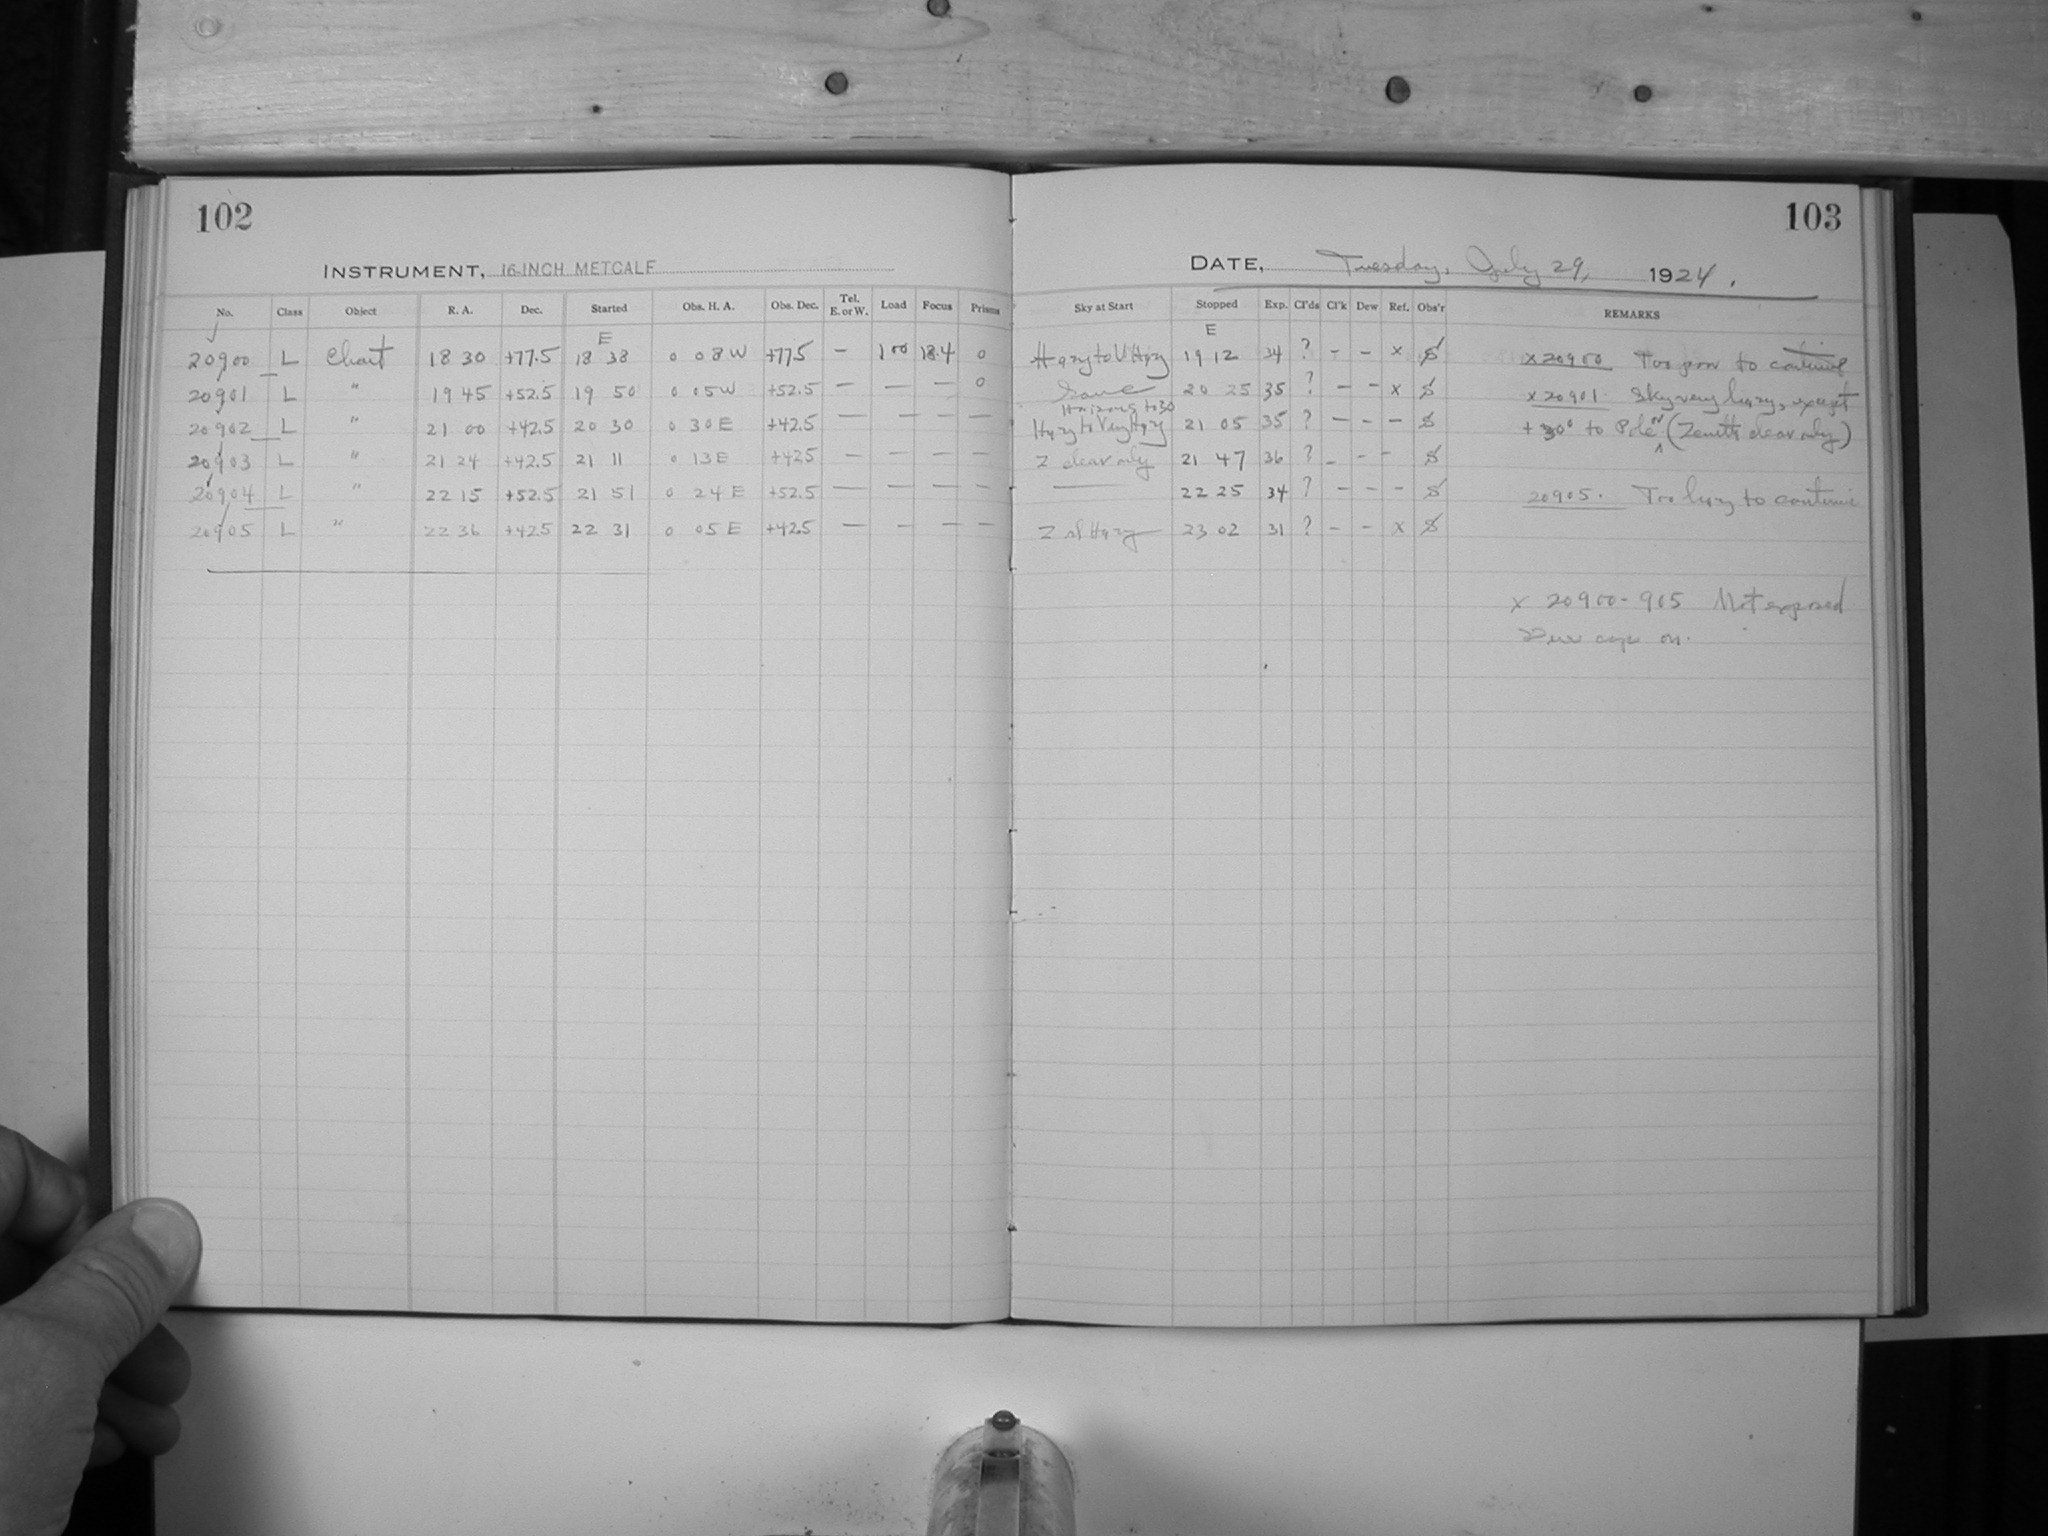 102
INSTRUMENT, 16-INCH METCALF
No. Class Object R. A. Dec. Started Obs. H. A. Obs. Dec. Tel. E. or W. Load Focus Prisms
E
20900 L Chart 18 30 +77.5 18 38 0 08 W +77.5 — 100 18.4 0
20901 L " 19 45 +52.5 19 50 0 05 W +52.5 — — — 0
20902 L " 21 00 +42.5 20 30 0 30 E +42.5 — — — —
20903 L " 21 24 +42.5 21 11 0 13 E +42.5 — — — —
20904 L " 22 15 +52.5 21 51 0 24 E +52.5 — — — —
20905 L " 22 36 +42.5 22 31 0 05 E +42.5 — — — —
103
DATE, Tuesday, July 29, 1924.
Sky at Start Stopped Exp. Cl'ds Cl'k Dew Ref. Obs'r REMARKS
E
Hazy to V Hazy 19 12 34 ? - - x x 20900 Too poor to continue
Same 20 25 35 ? - - x x 20901. Sky very hazy, except
Horizons to 30
Hazy to Very Hazy 21 05 35 ? - - - + 30° to Pole (Zenith clear only)
Z clear only 21 47 36 ? - - -
— 22 25 34 ? - - - 20905. Too hazy to continue
Z sl Hazy 23 02 31 ? - - x
x 20900-905 Not exposed
Dew cap on.